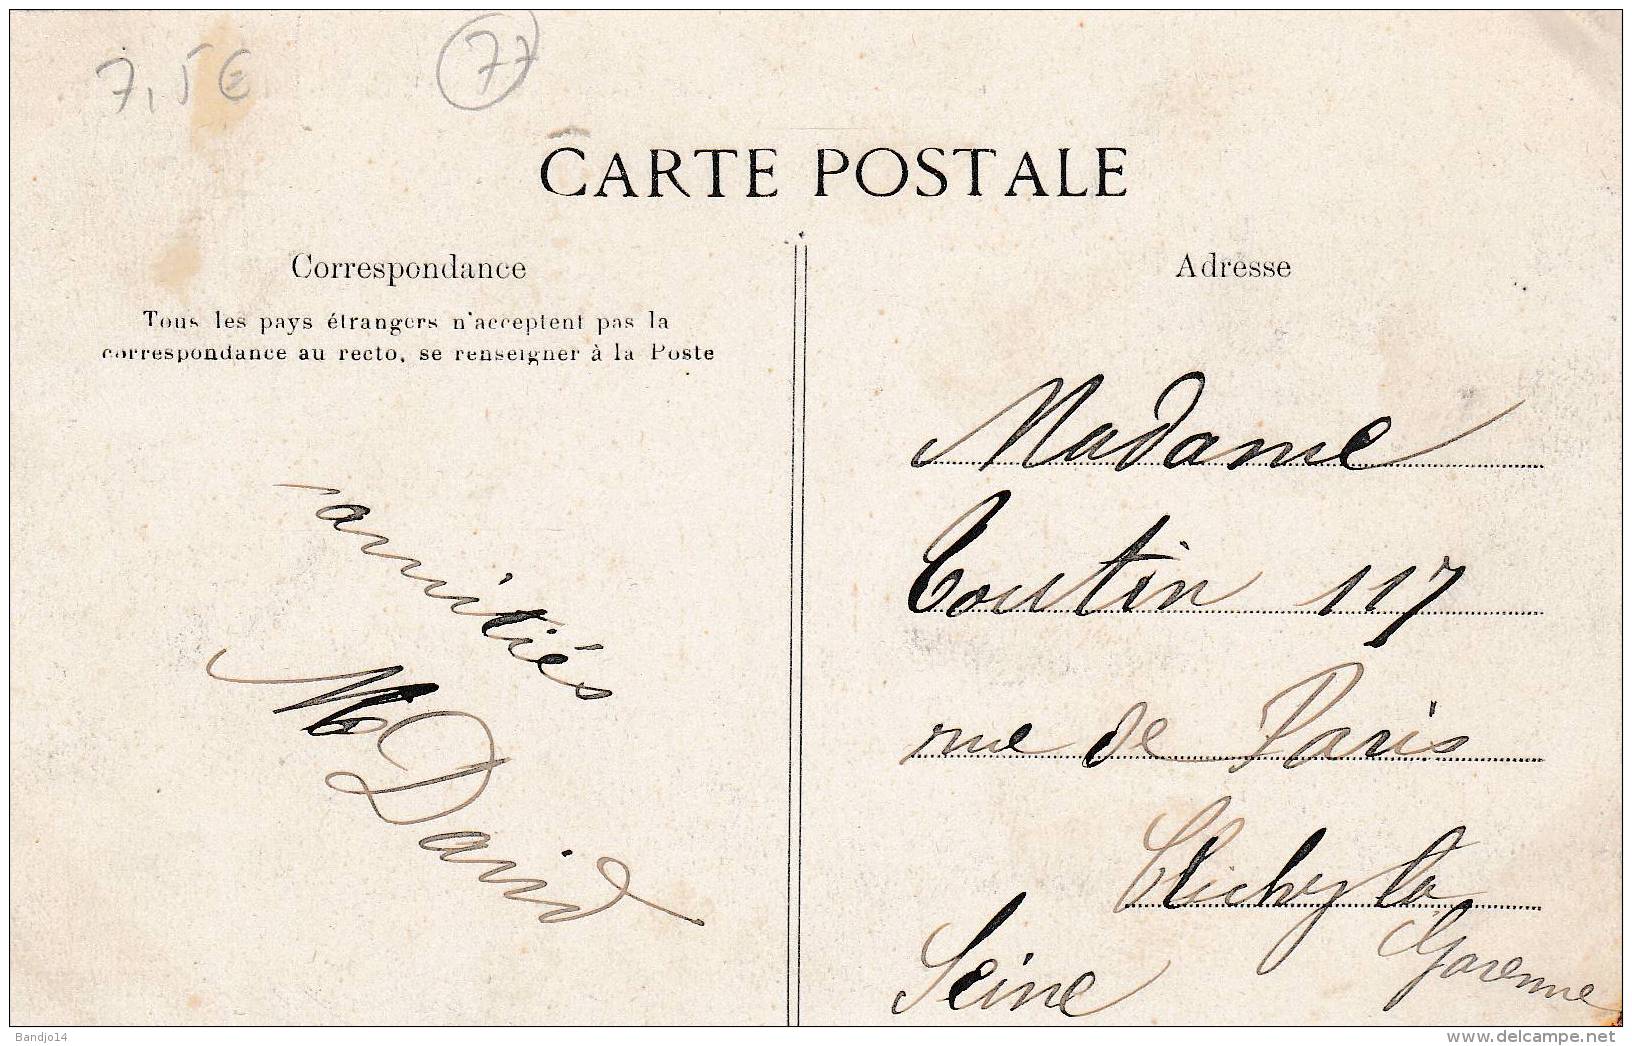 7,5€
77
CARTE POSTALE
Correspondance
Tous les pays étrangers n'acceptent pas la
correspondance au recto, se renseigner à la Poste
amitiés
M David
Adresse
Madame
Toutin 117
rue de Paris
Clichy la
Garenne
Seine
Bandjo14
delcampe.net